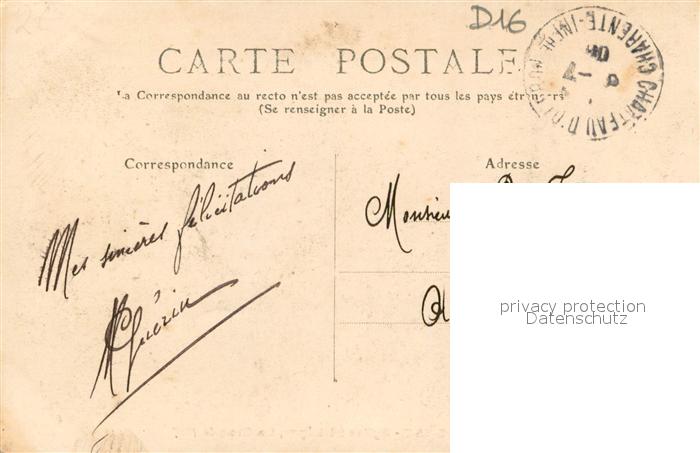 D16
CARTE POSTALE
La Correspondance au recto n'est pas acceptée par tous les pays étrangers
(Se renseigner à la Poste)
CHATEAU D'OLERON CHARENTE-INFRE
Correspondance
Adresse
Mes sincères félicitations
Guérin
Monsieur
privacy protection
Datenschutz